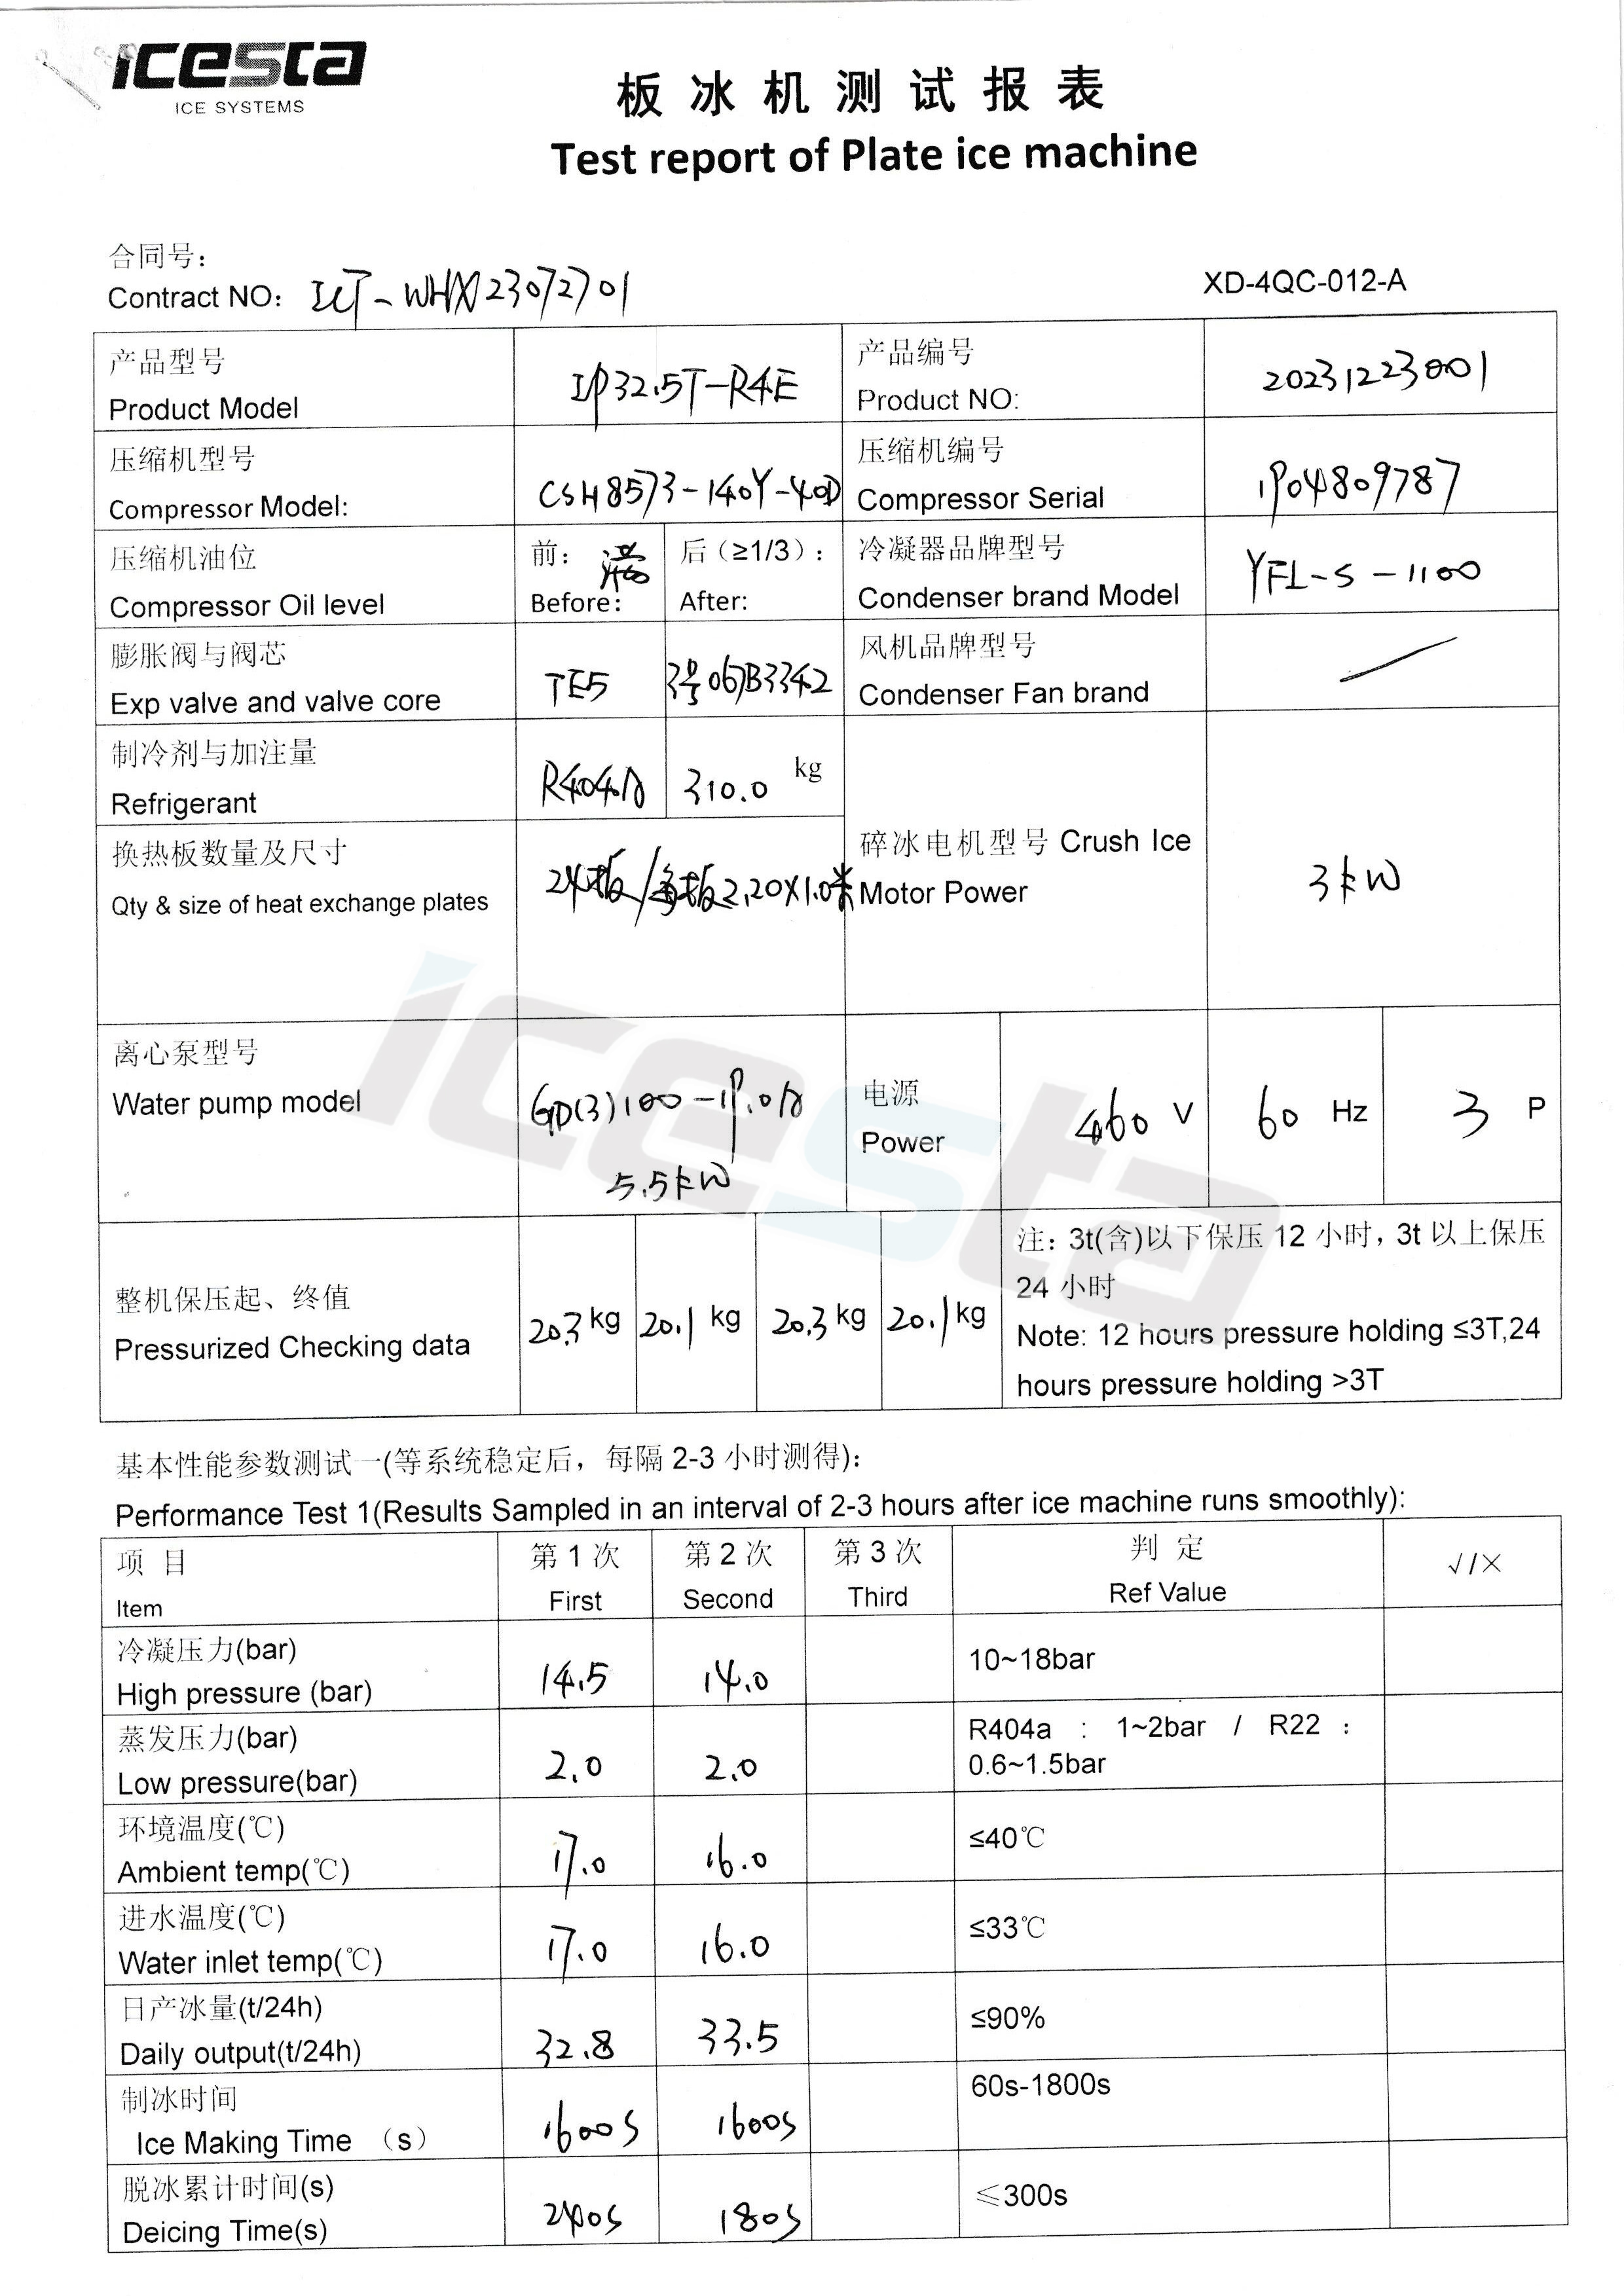 icesta
ICE SYSTEMS
板冰机测试报表
Test report of Plate ice machine
合同号：
Contract NO： ICT-WHX23072701
XD-4QC-012-A
产品型号
Product Model
IP32.5T-R4E
产品编号
Product NO:
20231223001
压缩机型号
Compressor Model:
CSH8573-140Y-40D
压缩机编号
Compressor Serial
1P04809787
压缩机油位
Compressor Oil level
前：
Before：
后（≥1/3）：
After:
冷凝器品牌型号
Condenser brand Model
YFL-S-1100
膨胀阀与阀芯
Exp valve and valve core
TE5
3号067B3342
风机品牌型号
Condenser Fan brand
制冷剂与加注量
Refrigerant
R404A
310.0 kg
换热板数量及尺寸
Qty & size of heat exchange plates
24板/每板2.20X1.0米
碎冰电机型号 Crush Ice
Motor Power
3kW
离心泵型号
Water pump model
GD(3)100-19.0A
5.5kW
电源
Power
460 V
60 Hz
3 P
整机保压起、终值
Pressurized Checking data
20.3 kg
20.1 kg
20.3 kg
20.1 kg
注：3t(含)以下保压 12 小时，3t 以上保压
24 小时
Note: 12 hours pressure holding ≤3T,24
hours pressure holding >3T
icesta
基本性能参数测试一(等系统稳定后，每隔 2-3 小时测得)：
Performance Test 1(Results Sampled in an interval of 2-3 hours after ice machine runs smoothly):
项 目
Item
第 1 次
First
第 2 次
Second
第 3 次
Third
判 定
Ref Value
√/×
冷凝压力(bar)
High pressure (bar)
14.5
14.0
10~18bar
蒸发压力(bar)
Low pressure(bar)
2.0
2.0
R404a : 1~2bar / R22 :
0.6~1.5bar
环境温度(℃)
Ambient temp(℃)
17.0
16.0
≤40℃
进水温度(℃)
Water inlet temp(℃)
17.0
16.0
≤33℃
日产冰量(t/24h)
Daily output(t/24h)
32.8
33.5
≤90%
制冰时间
Ice Making Time （s）
1600S
1600S
60s-1800s
脱冰累计时间(s)
Deicing Time(s)
240S
180S
≤300s